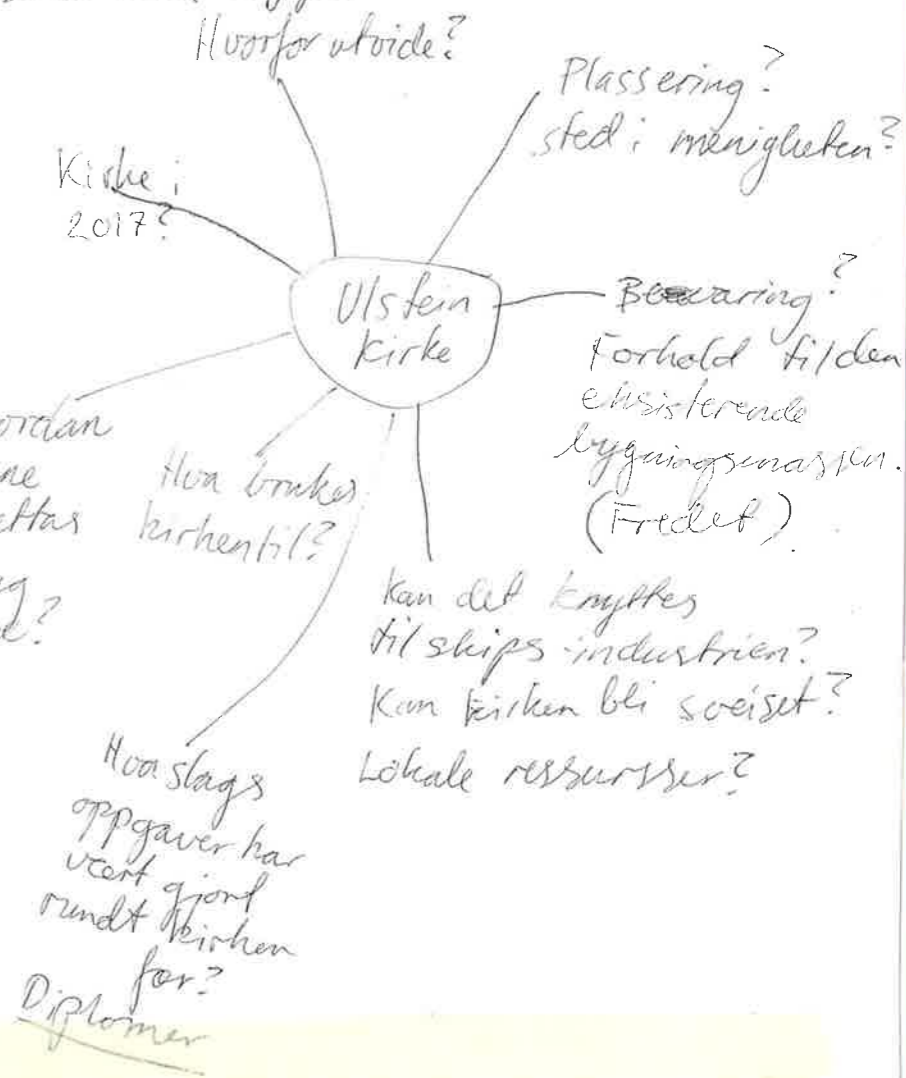 Hvorfor utvide?
Plassering?
sted i menigheten?
Kirke i
2017?
Ulstein
Kirke
Bevaring?
Forhold til den
eksisterende
bygningsmassen.
(Fredet)
ordan
ne
Hva brukes
kirken til?
Kan det knyttes
til skips-industrien?
Kan kirken bli sveiset?
Lokale ressursser?
Hva slags
oppgaver har
vært gjort
rundt kirken
før?
Diplomer